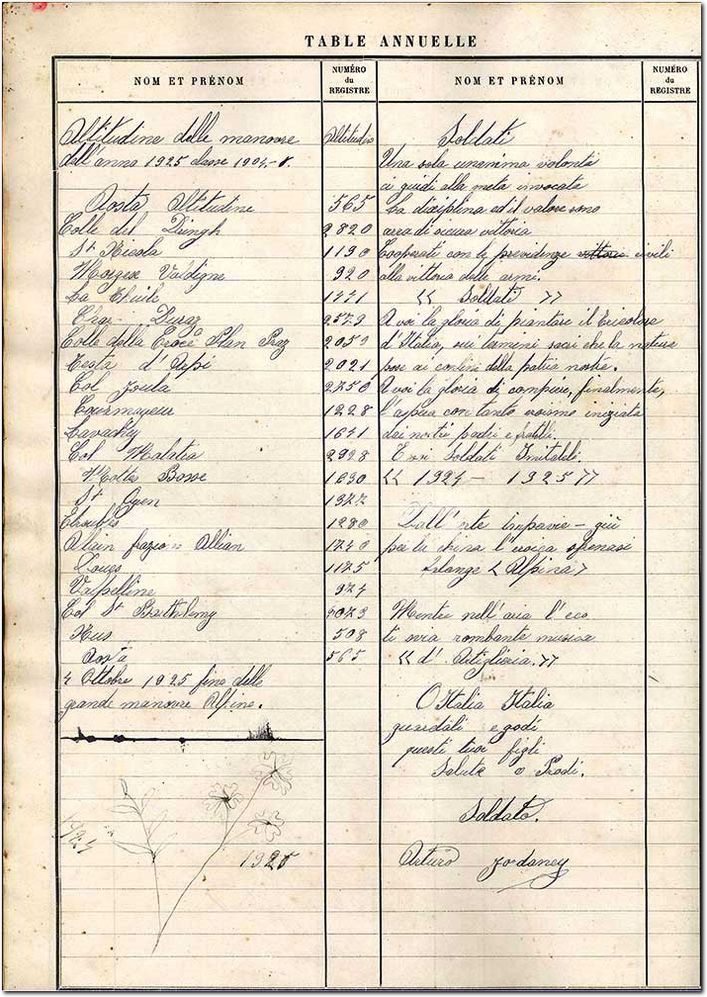 TABLE ANNUELLE
NOM ET PRÉNOM
NUMÉRO
du
REGISTRE
NOM ET PRÉNOM
NUMÉRO
du
REGISTRE
Altitudine delle manovre Altitudin
dell'anno 1925 classe 1904-
Aosta Altitudine 565
Colle del Dingh 2820
St Nicola 1190
Morgex Valdigne 920
La Thuile 1441
2579
Colle della Croce Plan Praz 2059
Testa d'Arpi 2021
Col Joula 2450
Courmayeur 1228
Lavachey 1641
Col Malatra 2928
Mottes Bosse 1630
St Oyen 1377
Etroubles 1280
Allain frazion Allian 1740
Doues 1175
Valpelline 974
Col St Barthelemy
Nus 508
Aosta 565
4 Ottobre 1925 fine delle
grande manovre Alpine.
1924
1925
Soldati
Una sola unanima volontà
ci guidi alla meta invocata
La disciplina ed il valore sono
arra di sicura vittoria
Cooperati con le previdenze civili
alla vittoria delle armi.
« Soldati »
A voi la gloria di piantare il Tricolore
d'Italia, sui termini sacri che la natura
pose ai confini della patria nostra.
A voi la gloria di compiere, finalmente,
l'aspra con tanto eroismo iniziata
dai nostri padri e fratelli.
Soldati
« 1924 - 1925 »
Dall' - giù
per la china l'eroica
falange < Alpina >
Mentre nell'aria l'eco
ti rombante musica
« d' Artiglieria. »
O Italia Italia
guardali e godi
questi tuoi figli
Salute o Prodi.
Soldato.
Arturo Jordaney